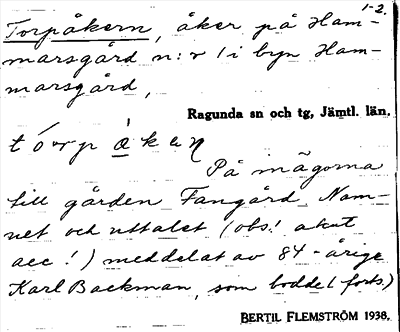 1-2.
Torpåkern, åker på Ham-
marsgård n:r 1 i byn Ham-
marsgård,
Ragunda sn och tg, Jämtl. län.
tórpåkaɳ
På ägorna
till gården Fangård. Nam-
net och uttalet (obs! akut
acc!) meddelat av 84-årige
Karl Backman, som bodde (forts.)
BERTIL FLEMSTRÖM 1938.